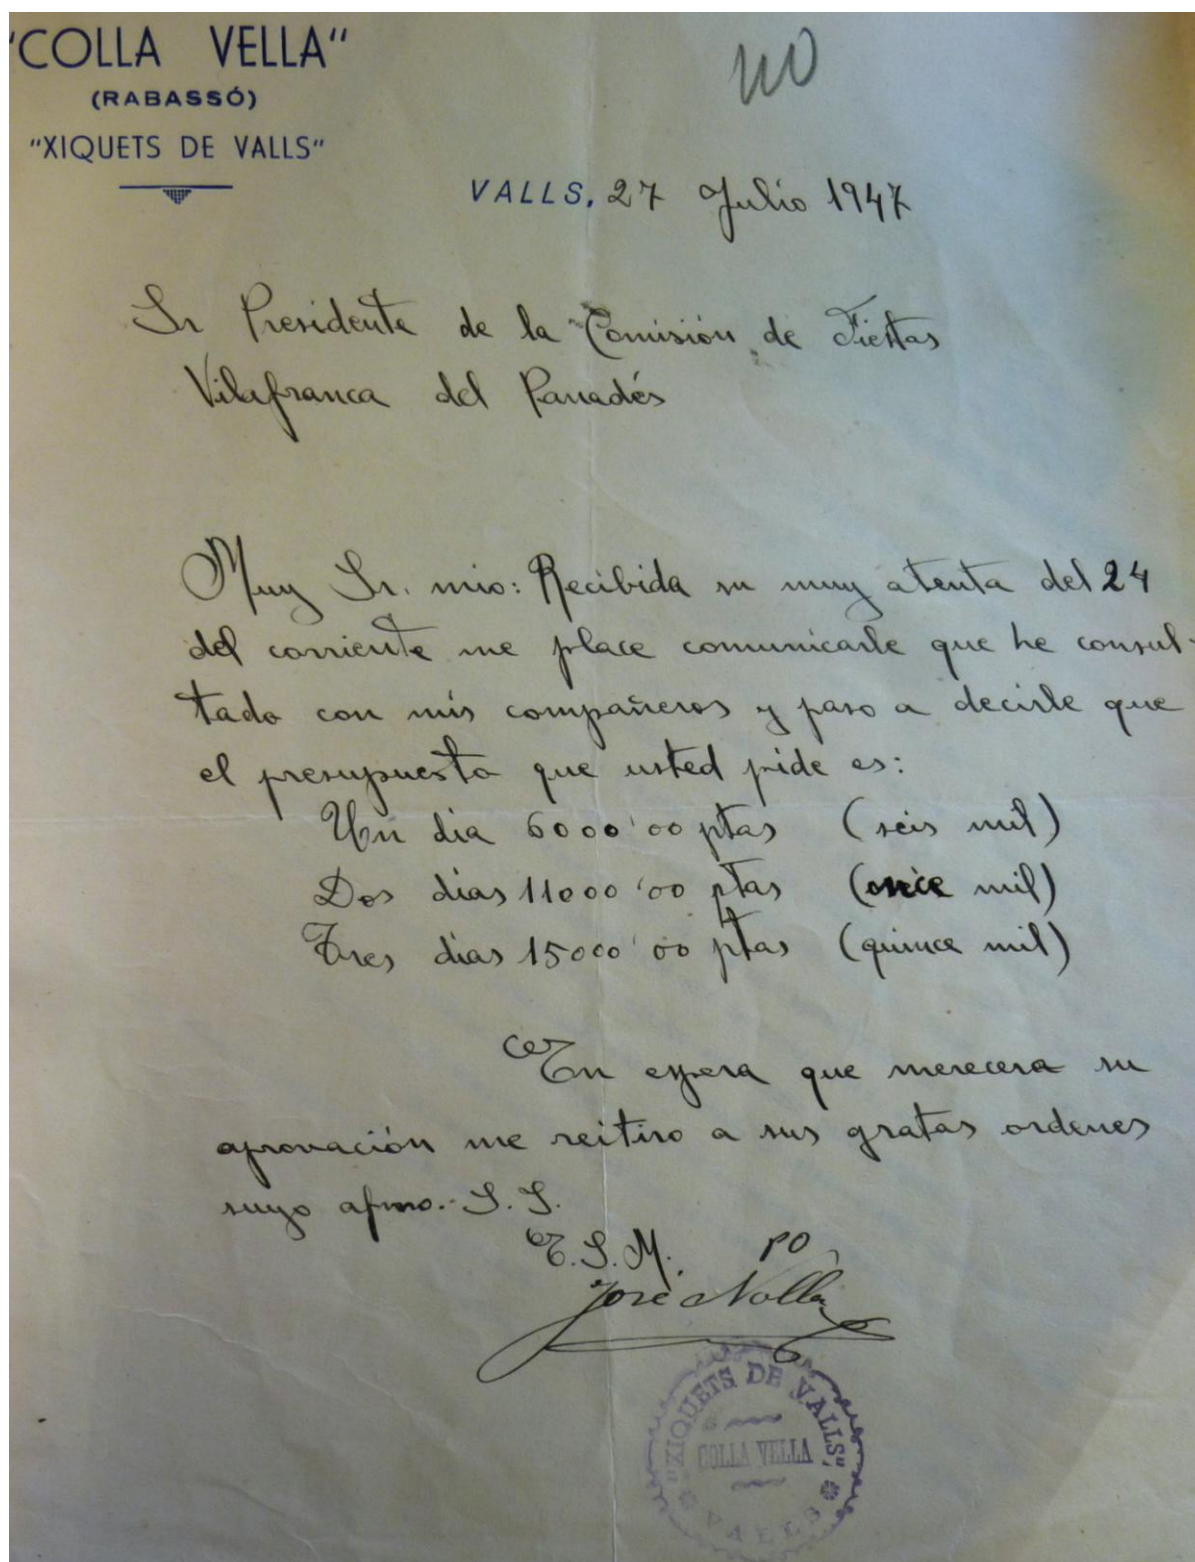 "COLLA VELLA"
(RABASSÓ)
"XIQUETS DE VALLS"
NO
VALLS, 27 Julio 1947
Sr Presidente de la Comisión de Fiestas
Vilafranca del Panadés
Muy Sr. mio: Recibida su muy atenta del 24
del corriente me place comunicarle que he consul-
tado con mis compañeros y paso a decirle que
el presupuesto que usted pide es:
Un dia 6000'00 ptas (seis mil)
Dos dias 11000'00 ptas (once mil)
Tres dias 15000'00 ptas (quince mil)
En espera que merecera su
aprovación me reitiro a sus gratas ordenes
suyo afmo. S. S.
E. S. M. PO
José Nolla
"XIQUETS DE VALLS"
COLLA VELLA
VALLS